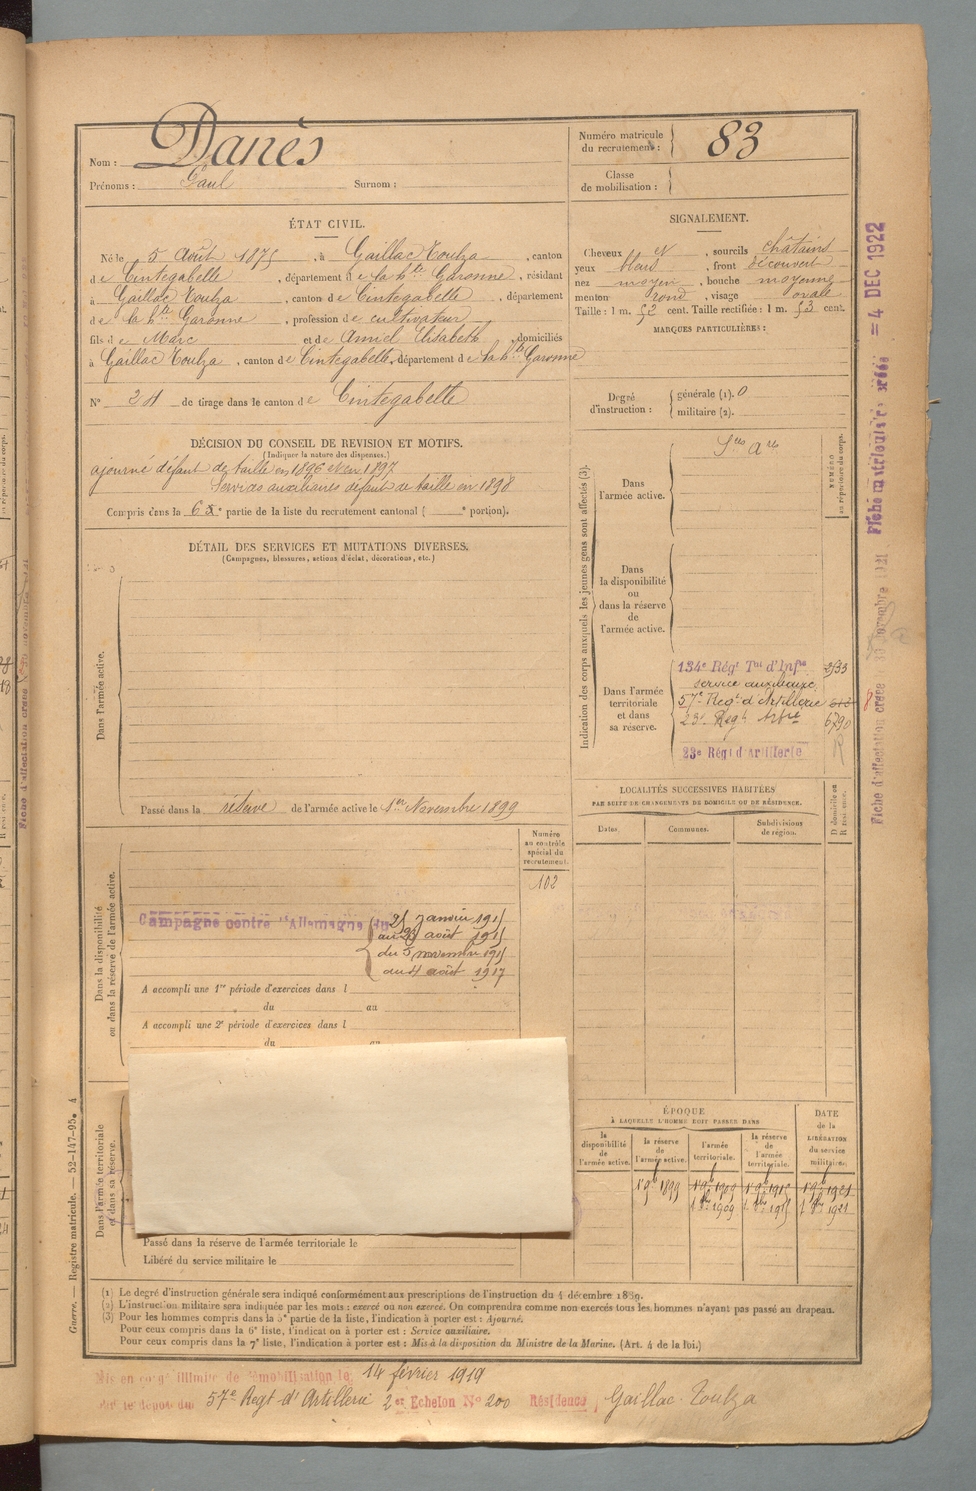 Nom : Danès
Prénoms : Paul Surnom :
Numéro matricule du recrutement : 83
Classe de mobilisation :
ÉTAT CIVIL.
Né le 5 Août 1875, à Gaillac Toulza, canton
de Cintegabelle, département de la hte Garonne, résidant
à Gaillac Toulza, canton de Cintegabelle, département
de la hte Garonne, profession de cultivateur
fils de Marc et de Amiel Elisabeth, domiciliés
à Gaillac Toulza, canton de Cintegabelle, département de la hte Garonne
N° 24 de tirage dans le canton de Cintegabelle
SIGNALEMENT.
Cheveux et, sourcils châtains
yeux, front découvert
nez moyen, bouche moyenne
menton rond, visage ovale
Taille : 1 m. 52 cent. Taille rectifiée : 1 m. 53 cent.
MARQUES PARTICULIÈRES :
Degré d'instruction : générale (1). 0
militaire (2).
DÉCISION DU CONSEIL DE REVISION ET MOTIFS.
(Indiquer la nature des dispenses.)
ajourné défaut de taille en 1896 et en 1897
Services auxiliaires défaut de taille en 1898
Compris dans la 6e partie de la liste du recrutement cantonal ( e portion).
DÉTAIL DES SERVICES ET MUTATIONS DIVERSES.
(Campagnes, blessures, actions d'éclat, décorations, etc.)
Dans l'armée active.
Passé dans la réserve de l'armée active le 1er Novembre 1899
Indication des corps auxquels les jeunes gens sont affectés (3).
NUMÉRO au répertoire du corps.
Dans l'armée active.
Sces Ares
Dans la disponibilité ou dans la réserve de l'armée active.
Dans l'armée territoriale et dans sa réserve.
134e Régt Tal d'Infie
service auxiliaire
57e Regt d'Artillerie
23e Regt Artie 6790
23e Régt d'Artillerie
LOCALITÉS SUCCESSIVES HABITÉES
PAR SUITE DE CHANGEMENTS DE DOMICILE OU DE RÉSIDENCE.
Dates. Communes. Subdivisions de région. D domicile ou R résidence.
Dans la disponibilité ou dans la réserve de l'armée active.
Numéro au contrôle spécial du recrutement.
102
Campagne contre l'Allemagne du 25 Janvier 1915
au 23 août 1915
du 5 novembre 1915
au 4 août 1917
A accompli une 1re période d'exercices dans l
du au
A accompli une 2e période d'exercices dans l
du au
Dans l'armée territoriale et dans sa réserve.
Passé dans la réserve de l'armée territoriale le
Libéré du service militaire le
ÉPOQUE
À LAQUELLE L'HOMME DOIT PASSER DANS
la disponibilité de l'armée active.
la réserve de l'armée active.
l'armée territoriale.
la réserve de l'armée territoriale.
DATE de la LIBÉRATION du service militaire.
1 9bre 1899 1 9bre 1909 1 9bre 1915 1 9bre 1921
1 8bre 1909 1 8bre 1915 1 8bre 1921
(1) Le degré d'instruction générale sera indiqué conformément aux prescriptions de l'instruction du 4 décembre 1889.
(2) L'instruction militaire sera indiquée par les mots : exercé ou non exercé. On comprendra comme non exercés tous les hommes n'ayant pas passé au drapeau.
(3) Pour les hommes compris dans la 5e partie de la liste, l'indication à porter est : Ajourné.
Pour ceux compris dans la 6e liste, l'indication à porter est : Service auxiliaire.
Pour ceux compris dans la 7e liste, l'indication à porter est : Mis à la disposition du Ministre de la Marine. (Art. 4 de la loi.)
Mis en congé illimité de démobilisation le 14 février 1919
par le dépôt du 57e Regt d'Artillerie 2e Echelon N° 200 Résidence, Gaillac-Toulza
Guerre. — Registre matricule. — 52-147-95. 4
Fiche matricule créée = 4 DEC 1922
Fiche d'affectation créée novembre 1921